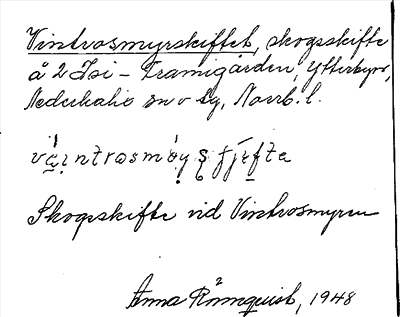 Vintrosmyrskiftet, skogsskifte
å 2 Isi – Framigården, Ytterbyn,
Nederkalix sn o lg, Norrb. l.
Skogsskifte vid Vintrosmyren
Anna Rönnquist, 1948